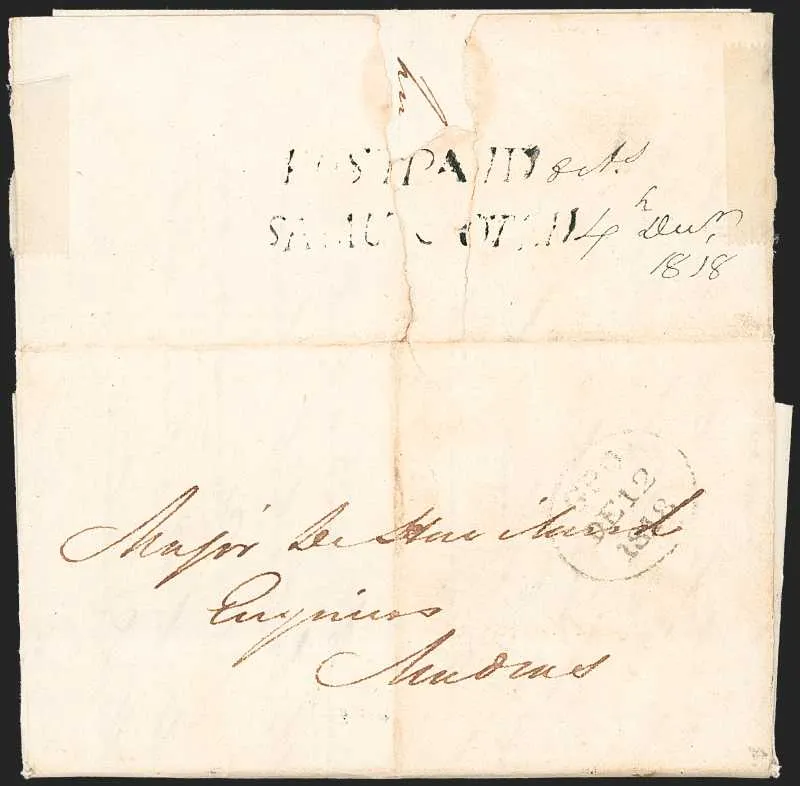 POSTPAID 8 As
SAMULCOTAH 4th Decr
1818
GPO
DE 12
1818
Major De Havilland
Engineers
Madras